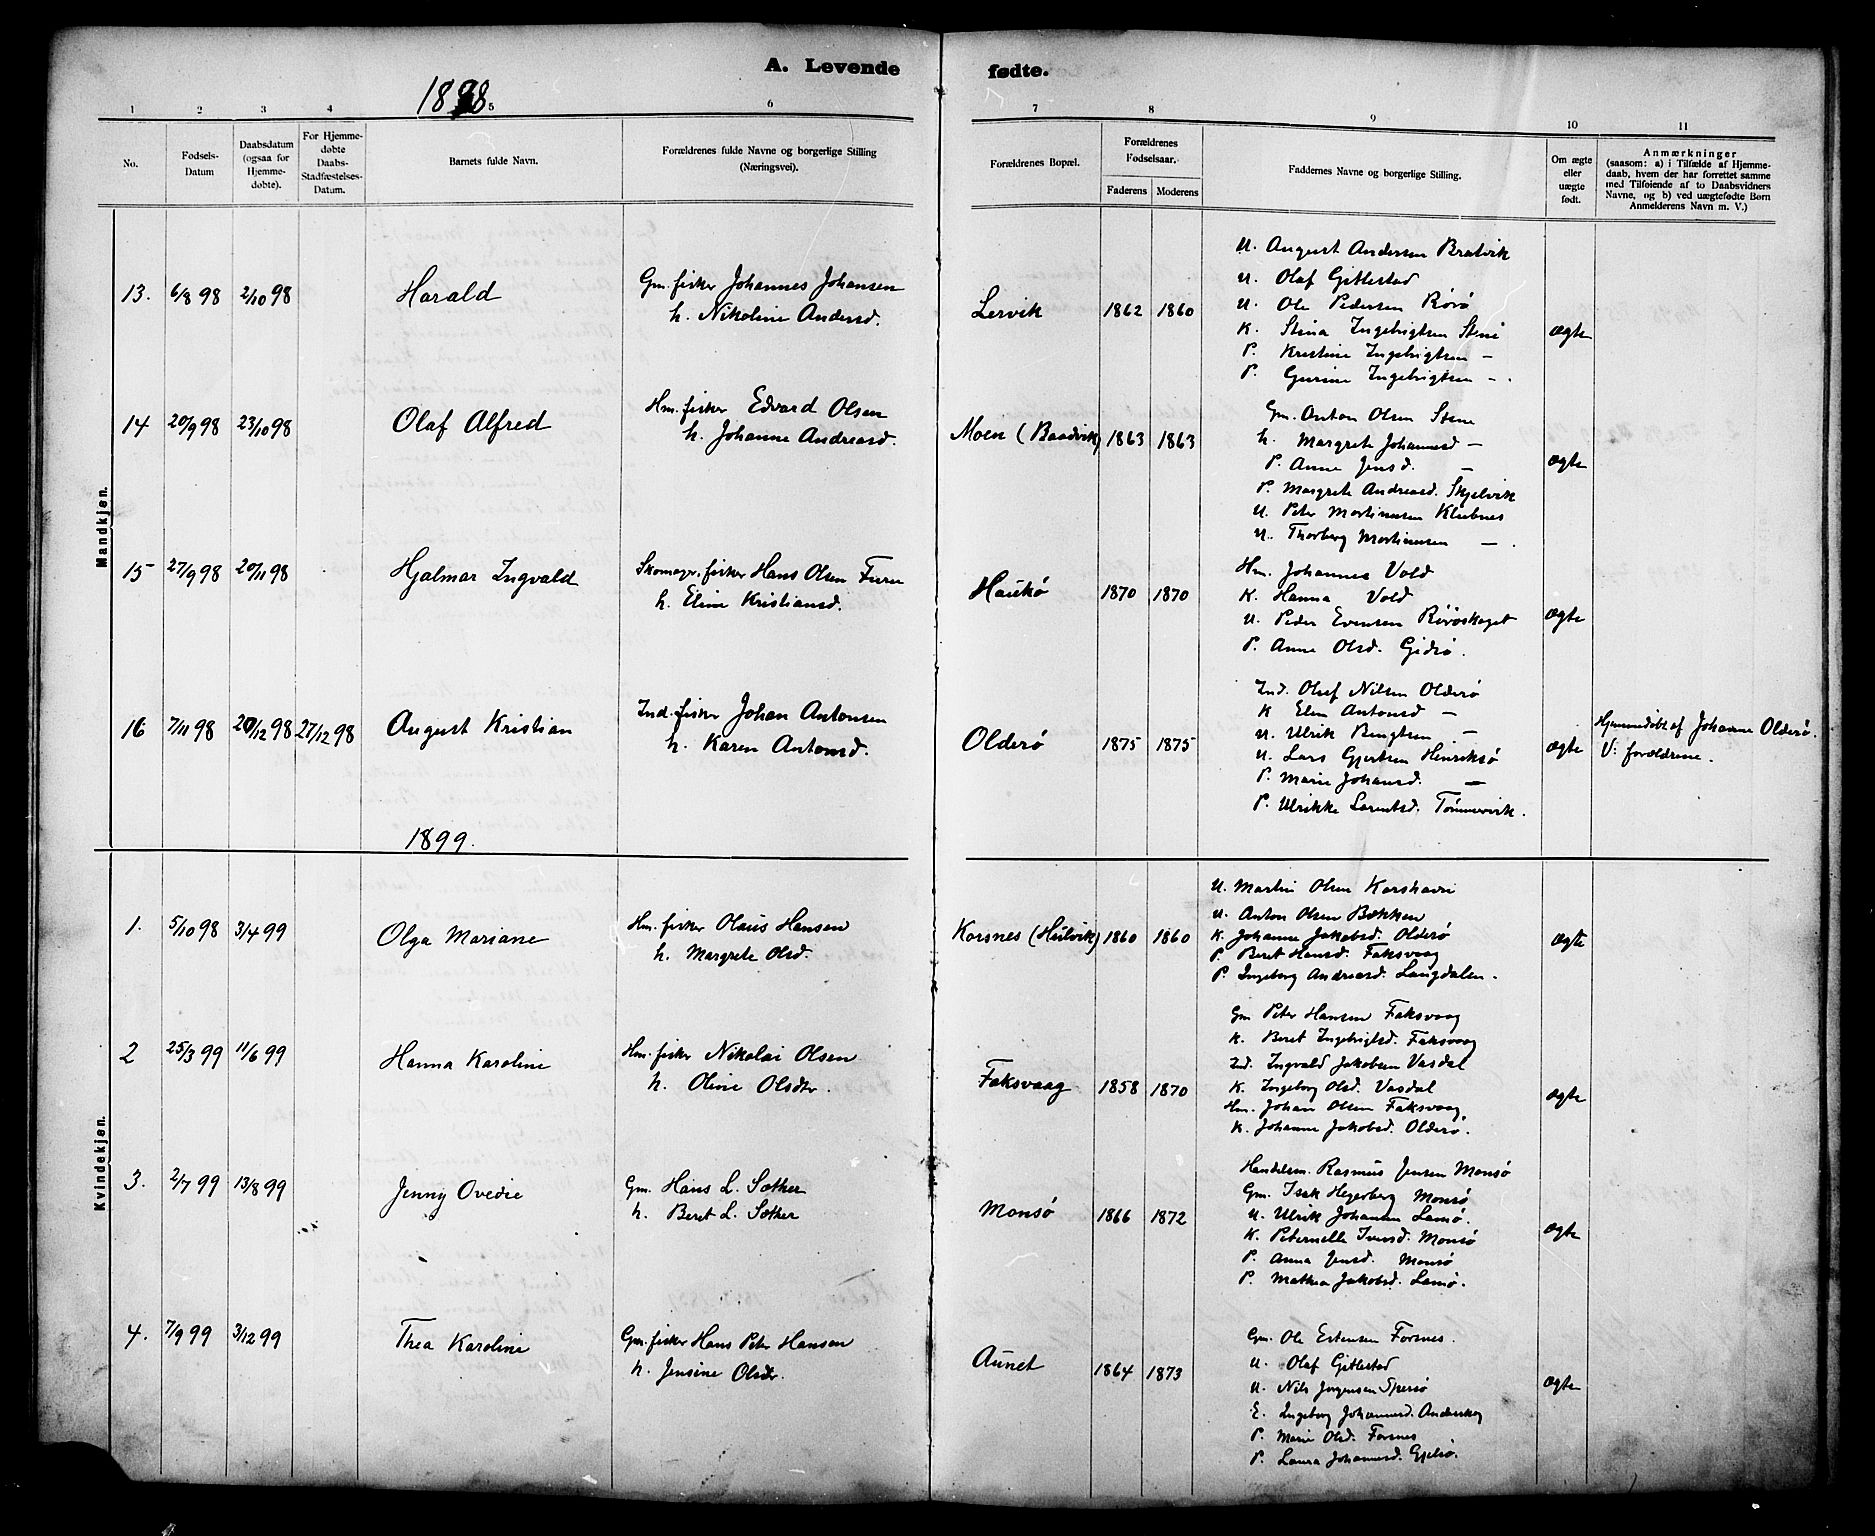 A. Levende fødte.
1898
1 2 3 4 5 6 7 8 9 10 11
No.
Fødsels-
Datum
Daabsdatum
(ogsaa for
Hjemme-
døbte).
For Hjemme-
døbte
Daabs-
Stadfæstelses-
Datum.
Barnets fulde Navn.
Forældrenes fulde Navne og borgerlige Stilling
(Næringsvei).
Forældrenes Bopæl.
Forældrenes
Fødselsaar.
Faderens Moderens
Faddernes Navne og borgerlige Stilling.
Om ægte
eller
uægte
født.
Anmærkninger
(saasom: a) i Tilfælde af Hjemme-
daab, hvem der har forrettet samme
med Tilføiende af to Daabsvidners
Navne, og b) ved uægtefødte Børn
Anmelderens Navn m. V.)
Mandkjøn.
13. 6/8 98 2/10 98 Harald
Gm. fisker Johannes Johansen
h. Nikoline Andersd.
Lervik 1862 1860
U. August Andersen Bratvik
U. Olaf Gittestad
U. Ole Pedersen Rørø
K. Stina Ingebrigtsen Stene
P. Kristine Ingebrigtsen —
P. Gurine Ingebrigtsen —.
ægte
14 20/9 98 23/10 98 Olaf Alfred
Hm. fisker Edvard Olsen
h. Johanne Andreasd.
Moen (Baadvik) 1863 1863
Gm. Anton Olsen Stene
h. Margrete Johannesd —
P. Anne Jensd. —
P. Margrete Andreasd. Skjelvik
U. Peter Martinusen Klubnes
U. Thorberg Martinusen —.
ægte
15 27/9 98 20/11 98 Hjalmar Ingvald
Skomager, fisker Hans Olsen Furu
h. Eline Kristiansd.
Haukø 1870 1870
Hm. Johannes Vold
K. Hanna Vold
U. Peder Evensen Rørøskaget
P. Anne Olsd. Gjdsø.
ægte
16 7/11 98 20/12 98 27/12 98 August Kristian
Ind. fisker Johan Antonsen
h. Karen Antonsd.
Olderø 1875 1875
Ind. Oluf Nilsen Olderø
K Elen Antonsd —
U. Ulrik Bengtsen —
U. Lars Gjertsen Henriksø
P. Marie Johansd. —
P. Ulrikke Larentsd. Tømmervik.
ægte
Hjemmedøbt af Johanne Olderø.
V: forældrene.
1899.
Kvindekjøn.
1. 5/10 98 3/4 99 Olga Mariane
Hm. fisker Olaus Hansen
h. Margrete Olsd.
Korsnes (Hulvik) 1860 1860
U. Martin Olsen Korshavn
U. Anton Olsen Bækken
K. Johanne Jakobsd. Olderø
P. Beret Hansd. Faksvaag
P. Ingeborg Andreasd. Langdalen.
ægte
2 25/3 99 11/6 99 Hanna Karoline
Hm. fisker Nikolai Olsen
h. Oline Olsdtr.
Faksvaag 1858 1870
Gm Peter Hansen Faksvaag
K. Beret Ingebrigtsd. Faksvaag
Ind. Ingvald Jakobsen Vasdal
K. Ingeborg Olsd. Vasdal
Hm. Johan Olsen Faksvaag.
K. Johanne Jakobsd. Olderø.
ægte
3. 2/7 99 13/8 99 Jenny Ovedie
Gm. Hans L. Sæther
h. Beret L. Sæther
Monsø 1866 1872
Handelsm. Rasmus Jensen Monsø
Gm. Isak Hegerberg Monsø
U. Ulrik Johansen Lamø.
K. Peternelle Iversd. Monsø
P. Anna Jensd. Monsø
P. Mathea Jakobsd. Lamø.
ægte
4. 7/9 99 3/12 99 Thea Karoline
Gm. fisker Hans Peter Hansen
h. Jensine Olsdtr.
Aunet 1864 1873
Gm. Ole Estensen Forsnes.
U. Olaf Gittestad
U. Nils Jørgensen Spersø
E. Ingeborg Johannesd. Anderskog
P. Marie Olsd. Forsnes
P. Laura Johannesd. Gjelsø.
ægte